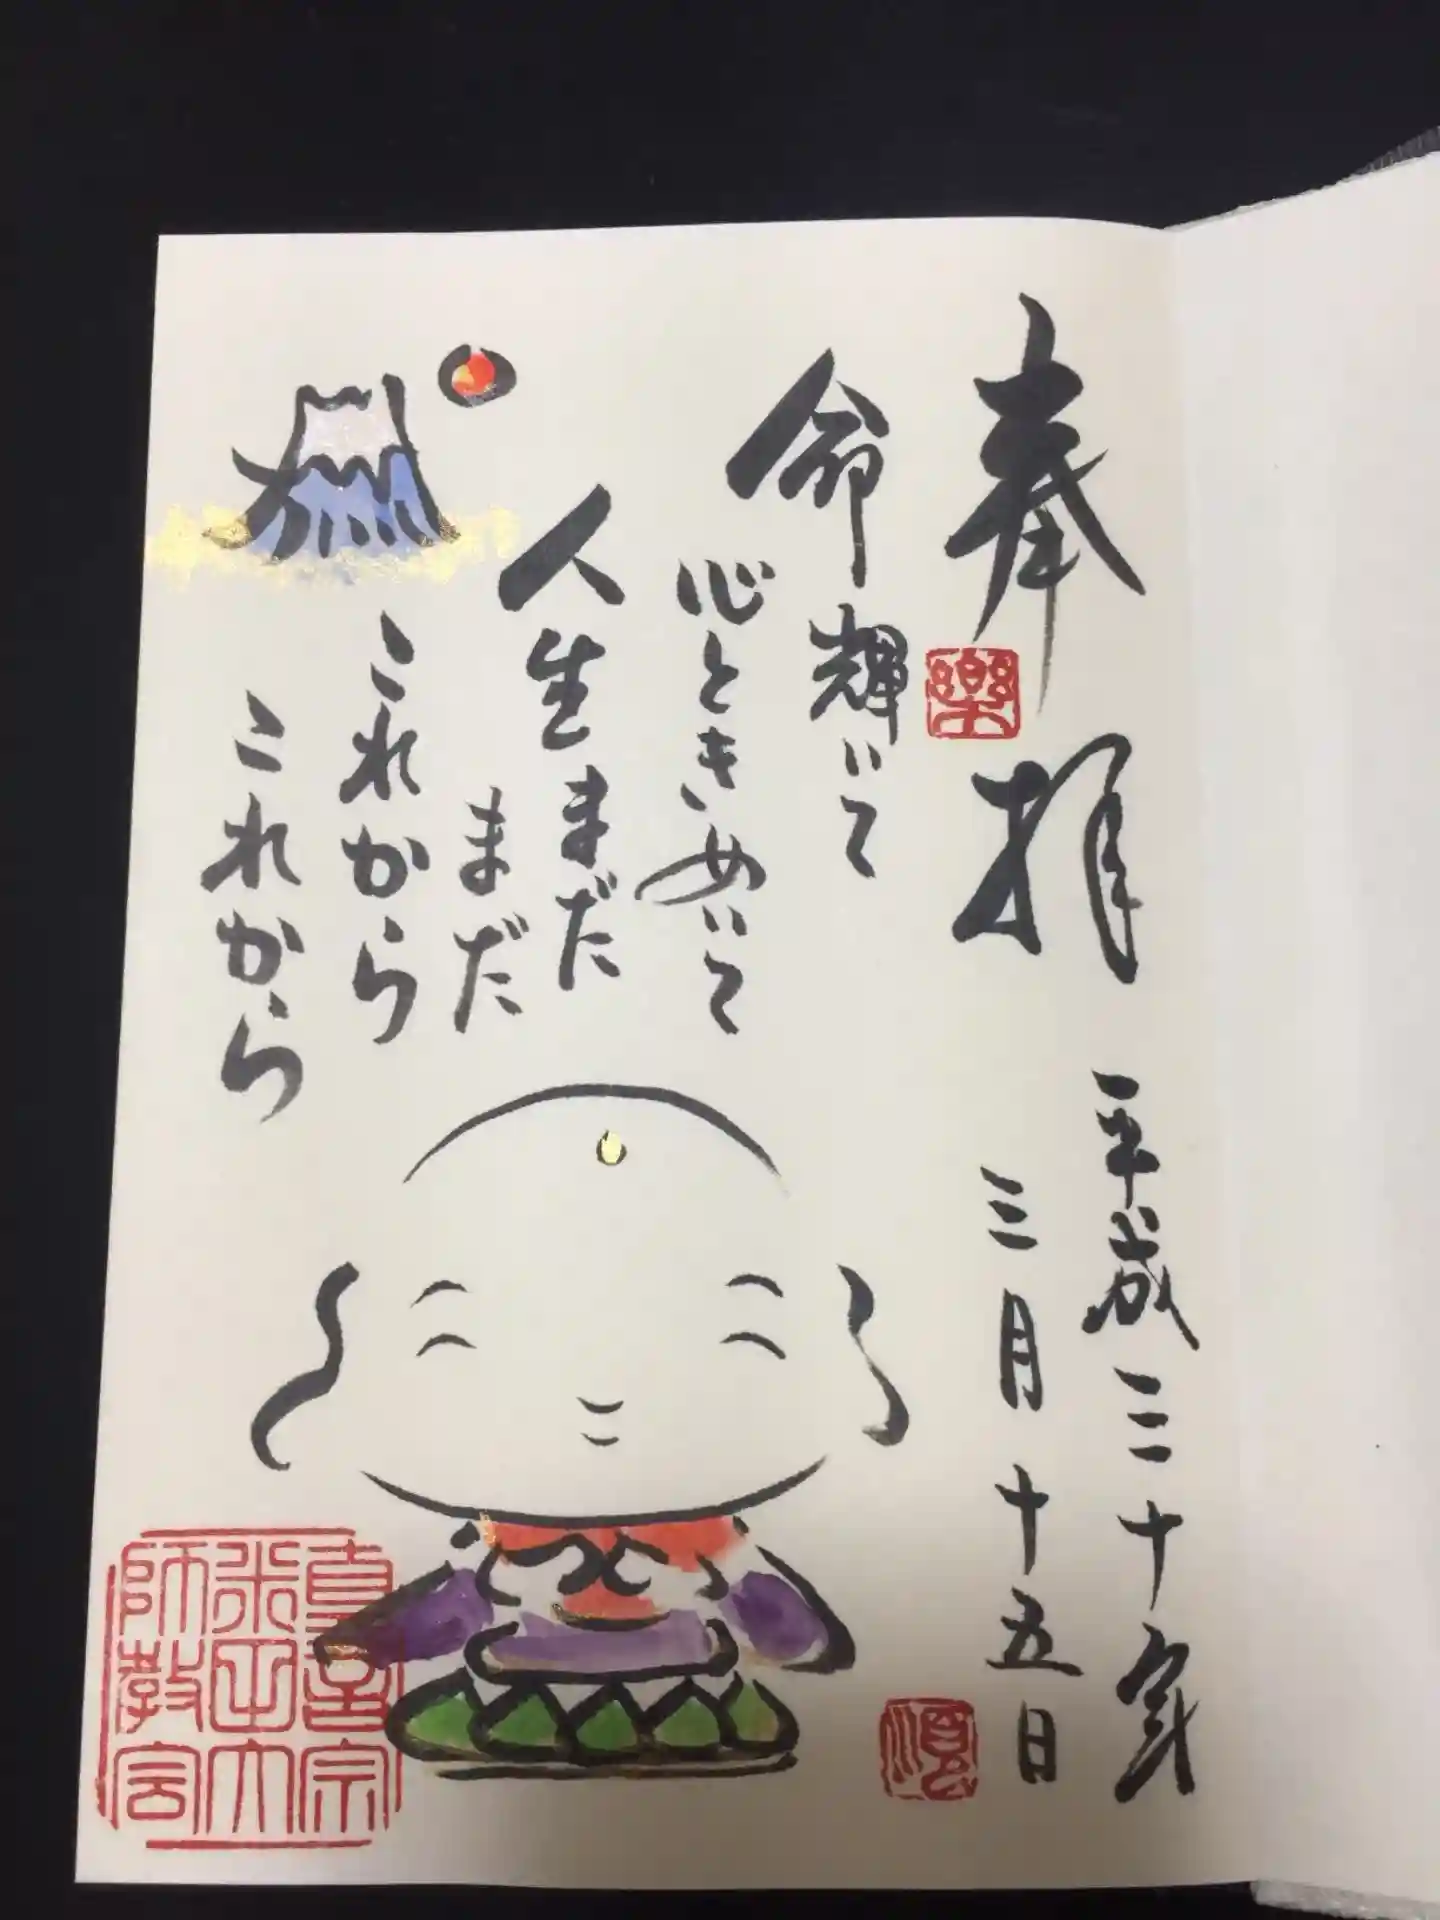 奉拝
平成三十年
三月十五日
命輝いて
心ときめいて
人生まだ
まだ
これから
これから
楽